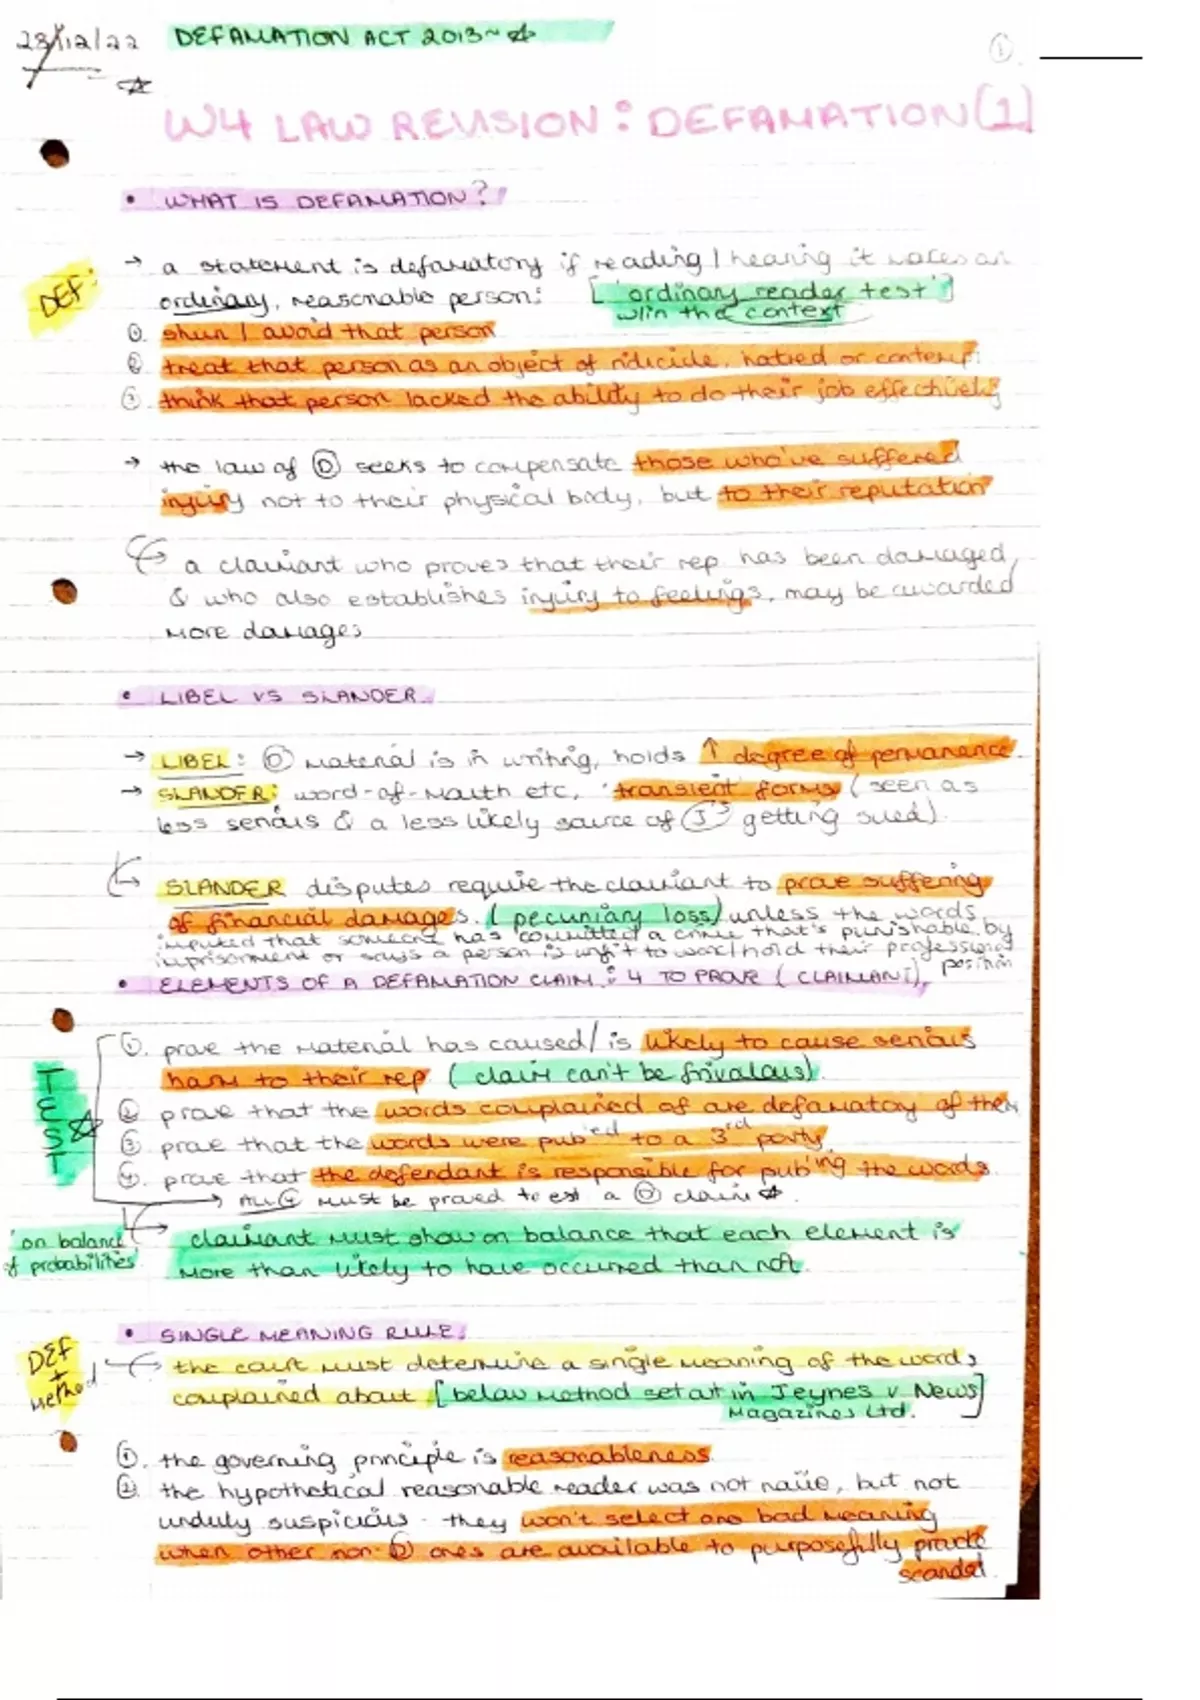 23/12/22 DEFAMATION ACT 2013~☆
①
☆
W4 LAW REVISION: DEFAMATION(1)
• WHAT IS DEFAMATION?
DEF:
→ a statement is defamatory if reading / hearing it makes an
ordinary, reasonable person: ['ordinary reader test']
w/in the context
①. shun / avoid that person
② treat that person as an object of ridicule, hatred or contempt.
③. think that person lacked the ability to do their job effectively
→ the law of Ⓓ seeks to compensate those who've suffered
injury not to their physical body, but to their reputation
↳ a claimant who proves that their rep. has been damaged,
& who also establishes injury to feelings, may be awarded
more damages
• LIBEL VS SLANDER.
→ LIBEL: Ⓓ material is in writing, holds ↑ degree of permanance.
→ SLANDER: word-of-mouth etc, 'transient' forms (seen as
less serious & a less likely source of Ⓙ's getting sued).
↳ SLANDER disputes require the claimant to prove suffering
of financial damages. (pecuniary loss) unless the words
imputed that someone has committed a crime that's punishable by
imprisonment or says a person is unfit to work/hold their professional
position
• ELEMENTS OF A DEFAMATION CLAIM: 4 TO PROVE (CLAIMANT),
TEST ☆
①. prove the material has caused/ is likely to cause serious
harm to their rep. (claim can't be frivolous).
② prove that the words complained of are defamatory of them
③ prove that the words were pub'ed to a 3rd party.
④. prove that the defendant is responsible for pub'ing the words.
→ ALL 4 must be proved to est. a Ⓓ claim ☆.
'on balance
of probabilities'
→ claimant must show on balance that each element is
more than likely to have occurred than not.
• SINGLE MEANING RULE:
DEF
+
method
→ the court must determine a single meaning of the words
complained about [below method set out in Jeynes v News
Magazines Ltd.]
①. the governing principle is reasonableness.
②. the hypothetical reasonable reader was not naïve, but not
unduly suspicious. they won't select one bad meaning
when other non-Ⓓ ones are available to purposefully provoke
scandal.